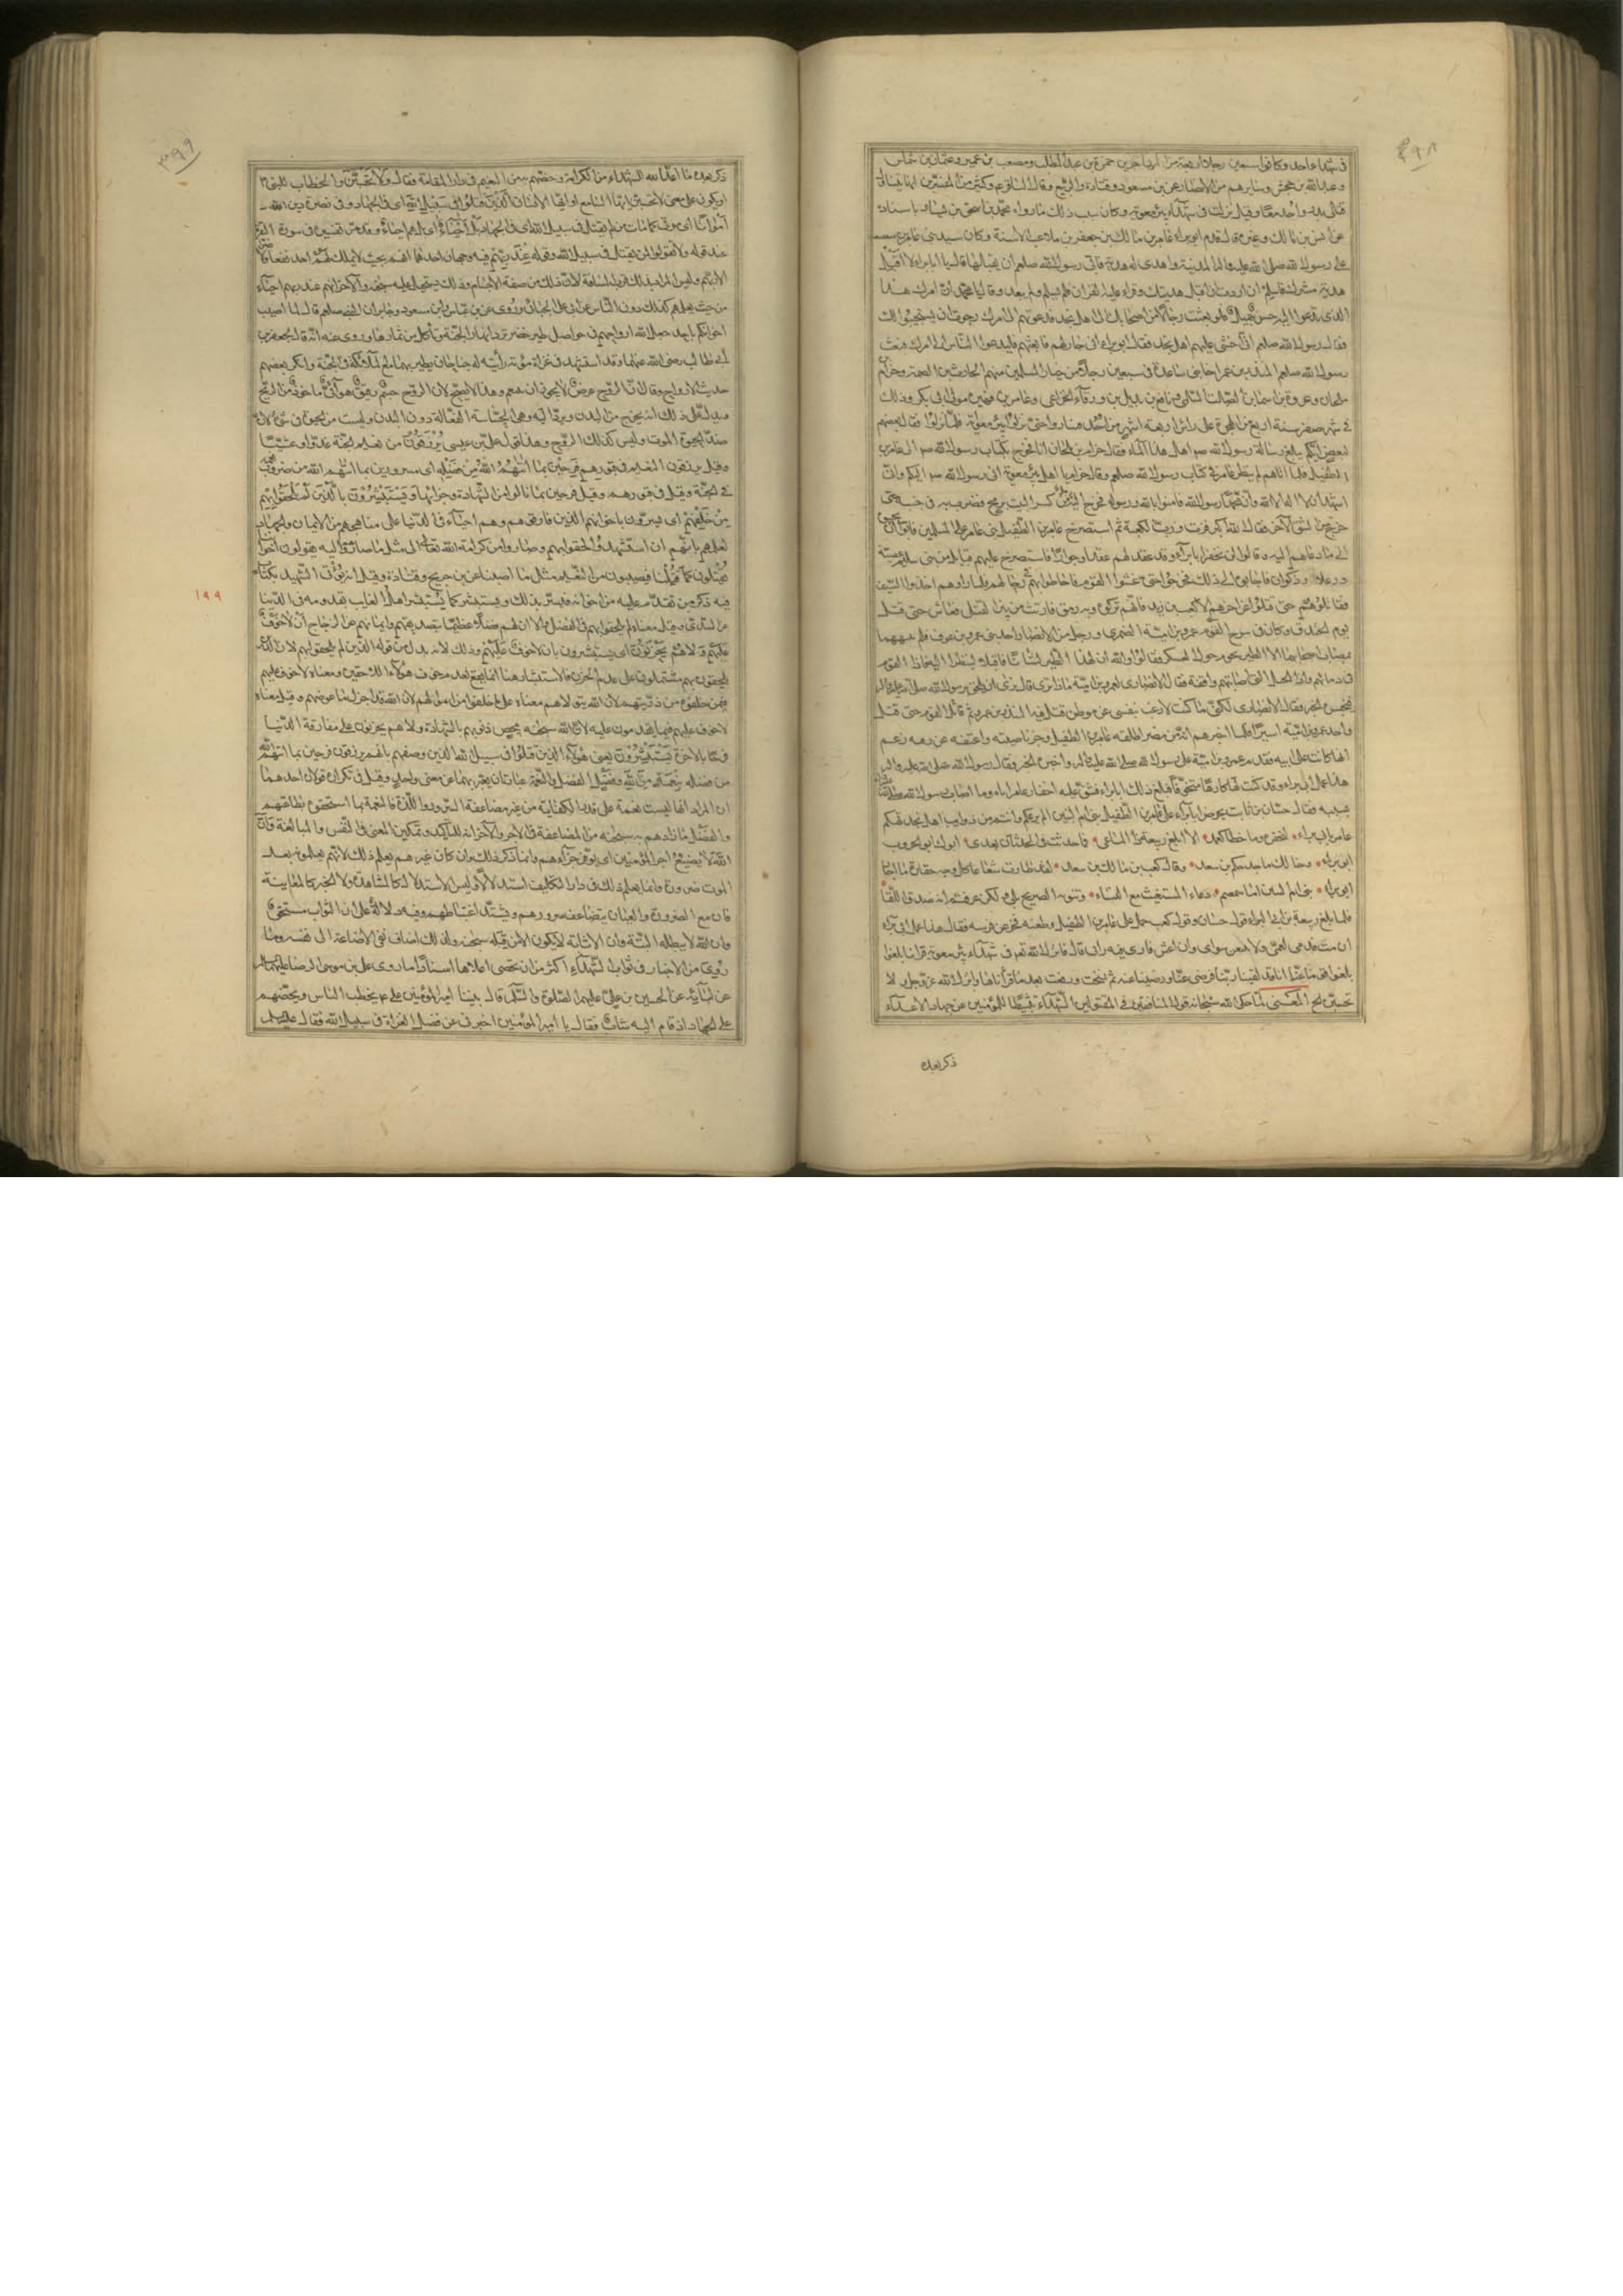 ٣٩٨
في شهداء احد وكانوا سبعين رجلا اربعة من المهاجرين حمزة بن عبد المطلب ومصعب بن عمير وعثمان بن شماس
وعبد الله بن جحش وسايرهم من الانصار عن بن مسعود وقتادة والربيع وقال الباقر ع وكثير من المفسرين انها تتناول
قتلى بدر واحد معا وقيل نزلت في شهداء بئر معونة وكان سبب ذلك ما رواه محمد بن اسحق بن يسار باسناده
عن انس بن مالك وغيره قال قدم ابو براء عامر بن مالك بن جعفر بن ملاعب الاسنة وكان سيد بني عامر بن صعصعة
على رسول الله صلى الله عليه واله المدينة واهدى له هدية فابى رسول الله صلعم ان يقبلها وقال يا ابا براء لا اقبل
هدية مشرك فاسلم ان اردت ان اقبل هديتك وقراء عليه القران فلم يسلم ولم يبعد وقال يا محمد ان امرك هذا
الذي تدعوا اليه حسن جميل فلو بعثت رجالا من اصحابك الى اهل نجد فدعوتهم الى امرك رجوت ان يستجيبوا لك
فقال رسول الله صلعم اني اخشى عليهم اهل نجد فقال ابو براء انا جار لهم فابعثهم فليدعوا الناس الى امرك فبعث
رسول الله صلعم المنذر بن عمر اخا بني ساعدة في سبعين رجلا من خيار المسلمين منهم الحارث بن الصمة وحرام بن
ملحان وعروة بن اسما بن الصلت السلمي ونافع بن بديل بن ورقاء الخزاعي وعامر بن فهيرة مولى ابي بكر وذلك
في شهر صفر سنة اربع من الهجرة على راس اربعة اشهر من احد فساروا حتى نزلوا بئر معونة فلما نزلوا قال بعضهم
لبعض ايكم يبلغ رسالة رسول الله ص اهل هذا الماء فقال حرام بن ملحان انا فخرج بكتاب رسول الله ص الى عامر بن
الطفيل فلما اتاهم لم ينظر عامر في كتاب رسول الله صلعم وقال حرام يا اهل بئر معونة اني رسول رسول الله ص اليكم واني
اشهد ان لا اله الا الله وان محمدا رسول الله فامنوا بالله ورسوله فخرج اليه رجل من كسر البيت برمح فضرب به في جنبه حتى
خرج من الشق الاخر فقال الله اكبر فزت ورب الكعبة ثم استصرخ عامر بن الطفيل بني عامر على المسلمين فابوا ان يجيبوه
الى ما دعاهم اليه وقالوا لن نخفر ابا براء وقد عقد لهم عقدا وجوارا فاستصرخ عليهم قبايل من بني سليم عصية
ورعلا وذكوان فاجابوه الى ذلك فخرجوا حتى غشوا القوم فاحاطوا بهم في رحالهم فلما راوهم اخذوا السيف
فقاتلوهم حتى قتلوا عن اخرهم الا كعب بن زيد فانهم تركوه وبه رمق فارتث من بين القتلى فعاش حتى قتل
يوم الخندق وكان في سرح القوم عمرو بن امية الضمري ورجل من الانصار احد بني عمرو بن عوف فلم ينبههما
بمصاب اصحابهما الا الطير يحوم حول العسكر فقالوا والله ان لهذا الطير لشانا فاقبلا لينظرا اليه فاذا القوم
في دمائهم واذا الخيل التي اصابتهم واقفة فقال الانصاري لعمرو بن امية ماذا ترى قال نرى ان نلحق برسول الله صلى الله عليه واله
فنخبره الخبر فقال الانصاري لكني ما كنت لارغب بنفسي عن موطن قتل فيه المنذر بن عمرو ثم قاتل القوم حتى قتل
واخذ عمرو بن امية اسيرا فلما اخبرهم انه من مضر اطلقه عامر بن الطفيل وجز ناصيته واعتقه عن رقبة زعم
انها كانت على ابيه فقدم عمرو بن امية على رسول الله صلى الله عليه واله واخبره الخبر فقال رسول الله صلى الله عليه واله
هذا عمل ابي براء وقد كنت لهذا كارها متخوفا فبلغ ذلك ابا براء فشق عليه اخفار عامر اياه وما اصاب رسول الله ص
بسببه فقال حسان بن ثابت يحرض ابا براء على عامر بن الطفيل بني ام البنين الم يرعكم وانتم من ذوايب اهل نجد تهكم
عامر بابي براء ليخفره وما خطا كعمد الا ابلغ ربيعة ذا المساعي فما احدثت في الحدثان بعدي ابوك ابو الحروب
ابو براء وخالك ماجد حكم بن سعد وقال كعب بن مالك لقد طارت شعاعا كل وجه خفارة ما اجار
ابو براء بني ام البنين اما سمعتم دعاء المستغيث مع المساء وتنويه الصريخ بلى ولكن عرفتم انه صدق اللقاء
فلما بلغ ربيعة بن ابي البراء قول حسان وقول كعب حمل على عامر بن الطفيل وطعنه فخر عن فرسه فقال هذا عمل ابي براء
ان مت فدمي لعمي ولا يتبعن سواي وان اعش فارى فيه رائي قال فانزل الله تعم في شهداء بئر معونة قرانا بلغوا
بلغوا قومنا عنا انا قد لقينا ربنا فرضي عنا ورضينا عنه ثم نسخت ورفعت بعد ما قرأناها وانزل الله عز وجل ولا
تحسبن الخ المعنى لما حكى الله سبحانه قول المنافقين في المقتولين الشهداء تثبيطا للمؤمنين عن جهاد الاعداء
ذكر بعده
٣٩٩
ذكر بعده ما اعد الله للشهداء من الكرامة وخصهم به من النعيم في دار المقامة فقال ولا تحسبن والخطاب للنبي ص
او يكون على معنى لا تحسبن ايها السامع او ايها الانسان الذين قتلوا في سبيل الله اي في الجهاد وفي نصرة دين الله
امواتا اي موتى كما مات من لم يقتل في سبيل الله في الجهاد بل احياء اي بل هم احياء وقد مر تفسيره في سورة البقرة
عند قوله ولا تقولوا لمن يقتل في سبيل الله وقوله عند ربهم فيه وجهان احدهما انهم بحيث لا يملك لهم احد نفعا ولا ضرا
الا ربهم وليس المراد بذلك قرب المسافة لان ذلك من صفة الاجسام وذلك يستحيل عليه سبحنه والاخر انهم عند ربهم احياء
من حيث يعلمهم كذلك دون الناس عن ابي علي الجبائي وروي عن بن عباس وابن مسعود وجابر ان النبي صلعم قال لما اصيب
اخوانكم باحد جعل الله ارواحهم في حواصل طير خضر ترد انهار الجنة وتأكل من ثمارها وروي عنه انه قال لجعفر بن
ابي طالب رضي الله عنهما وقد استشهد في غزاة مؤتة رأيته له جناحان يطير بهما مع الملائكة في الجنة وانكر بعضهم
حديث الارواح وقال ان الروح عرض لا يجوز ان يتنعم وهذا لا يصح لان الروح جسم رقيق هوائي مأخوذ من الريح
ويدل على ذلك انه يخرج من البدن ويرد اليه وهي الحساسة الفعالة دون البدن وليست من الحيوة في شيء لان
ضد الحيوة الموت وليس كذلك الروح وهذا قول علي بن عيسى يرزقون من نعيم الجنة غدوا وعشيا
وقيل يرزقون النعيم في قبورهم فرحين بما اتيهم الله من فضله اي مسرورين بما اتيهم الله من ضروب نعمه
في الجنة وقيل في قبورهم وقيل فرحين بما نالوا من الشهادة وجزائها ويستبشرون بالذين لم يلحقوا بهم
من خلفهم اي يسرون باخوانهم الذين فارقوهم وهم احياء في الدنيا على مناهجهم من الايمان والجهاد
لعلمهم بانهم ان استشهدوا لحقوا بهم وصاروا من كرامة الله تعالى الى مثل ما صاروا اليه يقولون اخواننا
يقتلون كما قتلنا فيصيبون من النعيم مثل ما اصبنا عن بن جريح وقتادة وقيل انه يؤتى الشهيد بكتاب
١٩٩
فيه ذكر من تقدم عليه من اخوانه فيسر بذلك ويستبشر كما يستبشر اهل الغايب بقدومه في الدنيا
عن السدي وقيل معناه لم يلحقوا بهم في الفضل الا ان لهم فضلا عظيما بتصديقهم وايمانهم عن الزجاج ان لا خوف
عليهم ولا هم يحزنون اي يستبشرون بان لا خوف عليهم وذلك لانه بدل من قوله الذين لم يلحقوا بهم لان الذين
يلحقون بهم مشتملون على عدم الحزن فالاستبشار هنا انما يقع بعدم خوف هؤلاء اللاحقين ومعناه لا خوف عليهم
فيمن خلفوه من ذريتهم لان الله يتولاهم ولا هم يحزنون على ما خلفوا من اموالهم لان الله قد اجزل ما عوضهم وقيل معناه
لا خوف عليهم فيما يقدمون عليه لان الله سبحنه يمحص ذنوبهم بالشهادة ولا هم يحزنون على مفارقة الدنيا
فرحا بالاخرة يستبشرون يعني هؤلاء الذين قتلوا في سبيل الله الذين وصفهم بانهم يرزقون فرحين بما اتيهم الله
من فضله بنعمة من الله وفضل الفضل والنعمة عبارتان يعبر بهما عن معنى واحد وقيل في تكراره قولان احدهما
ان المراد انها ليست نعمة على قدر الكفاية من غير مضاعفة السرور واللذة فالنعمة بما استحقوه بطاعتهم
والفضل ما زادهم به سبحنه من المضاعفة في الاجر والاخر انه للتأكيد وتمكين المعنى في النفس والمبالغة وان
الله لا يضيع اجر المؤمنين اي يوفي جزاءهم وانما ذكر ذلك وان كان غيرهم يعلم ذلك لانهم يعلمونه بعد
الموت ضرورة وانما يعلم ذلك في دار التكليف استدلالا وليس الاستدلال كالمشاهدة ولا الخبر كالمعاينة
فان مع الضرورة والعيان يتضاعف سرورهم ويشتد اغتباطهم وفيه دلالة على ان الثواب مستحق
وان الله لا يبطله البتة وان الاثابة لا يكون الا من قبله سبحنه ولذلك اضاف نفي الاضاعة الى نفسه ومما
روي من الاخبار في ثواب الشهداء اكثر من ان يحصى اعلاها اسنادا ما روي علي بن موسى الرضا عليهما السلام
عن ابائه عن الحسين بن علي عليهم الصلوة والسلام قال بينا امير المؤمنين علي ع يخطب الناس ويحضهم
على الجهاد اذ قام اليه شاب فقال يا امير المؤمنين اخبرني عن فضل الغزاة في سبيل الله فقال علي عليه السلام